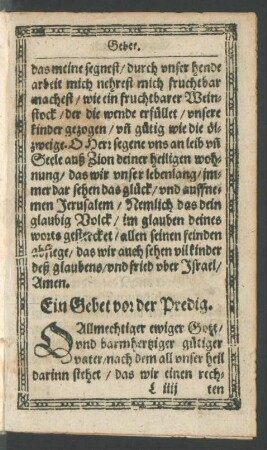 Gebet.
das meine segnest/ durch vnser hende
arbeit mich nehrest mich fruchtbar
machest/ wie ein fruchtbarer Wein-
stock/ der die wende erfüllet/ vnsere
kinder gezogen/ vñ gütig wie die öl-
zweige. O Herr segene vns an leib vñ
Seele auß Zion deiner heiligen woh-
nung/ das wir vnser lebenlang/ im-
mer dar sehen das glück/ vnd auffne-
men Jerusalem/ Nemlich das dein
glaubig Volck/ im glauben deines
worts gestercket/ allen seinen feinden
absiege/ das wir auch sehen vil kinder
deß glaubens/ vnd fried vber Israel/
Amen.
Ein Gebet vor der Predig.
O Allmechtiger ewiger Gott/
vnd barmhertziger gütiger
vater/ nach dem all vnser heil
darinn stehet/ das wir einen rech-
L iiij ten